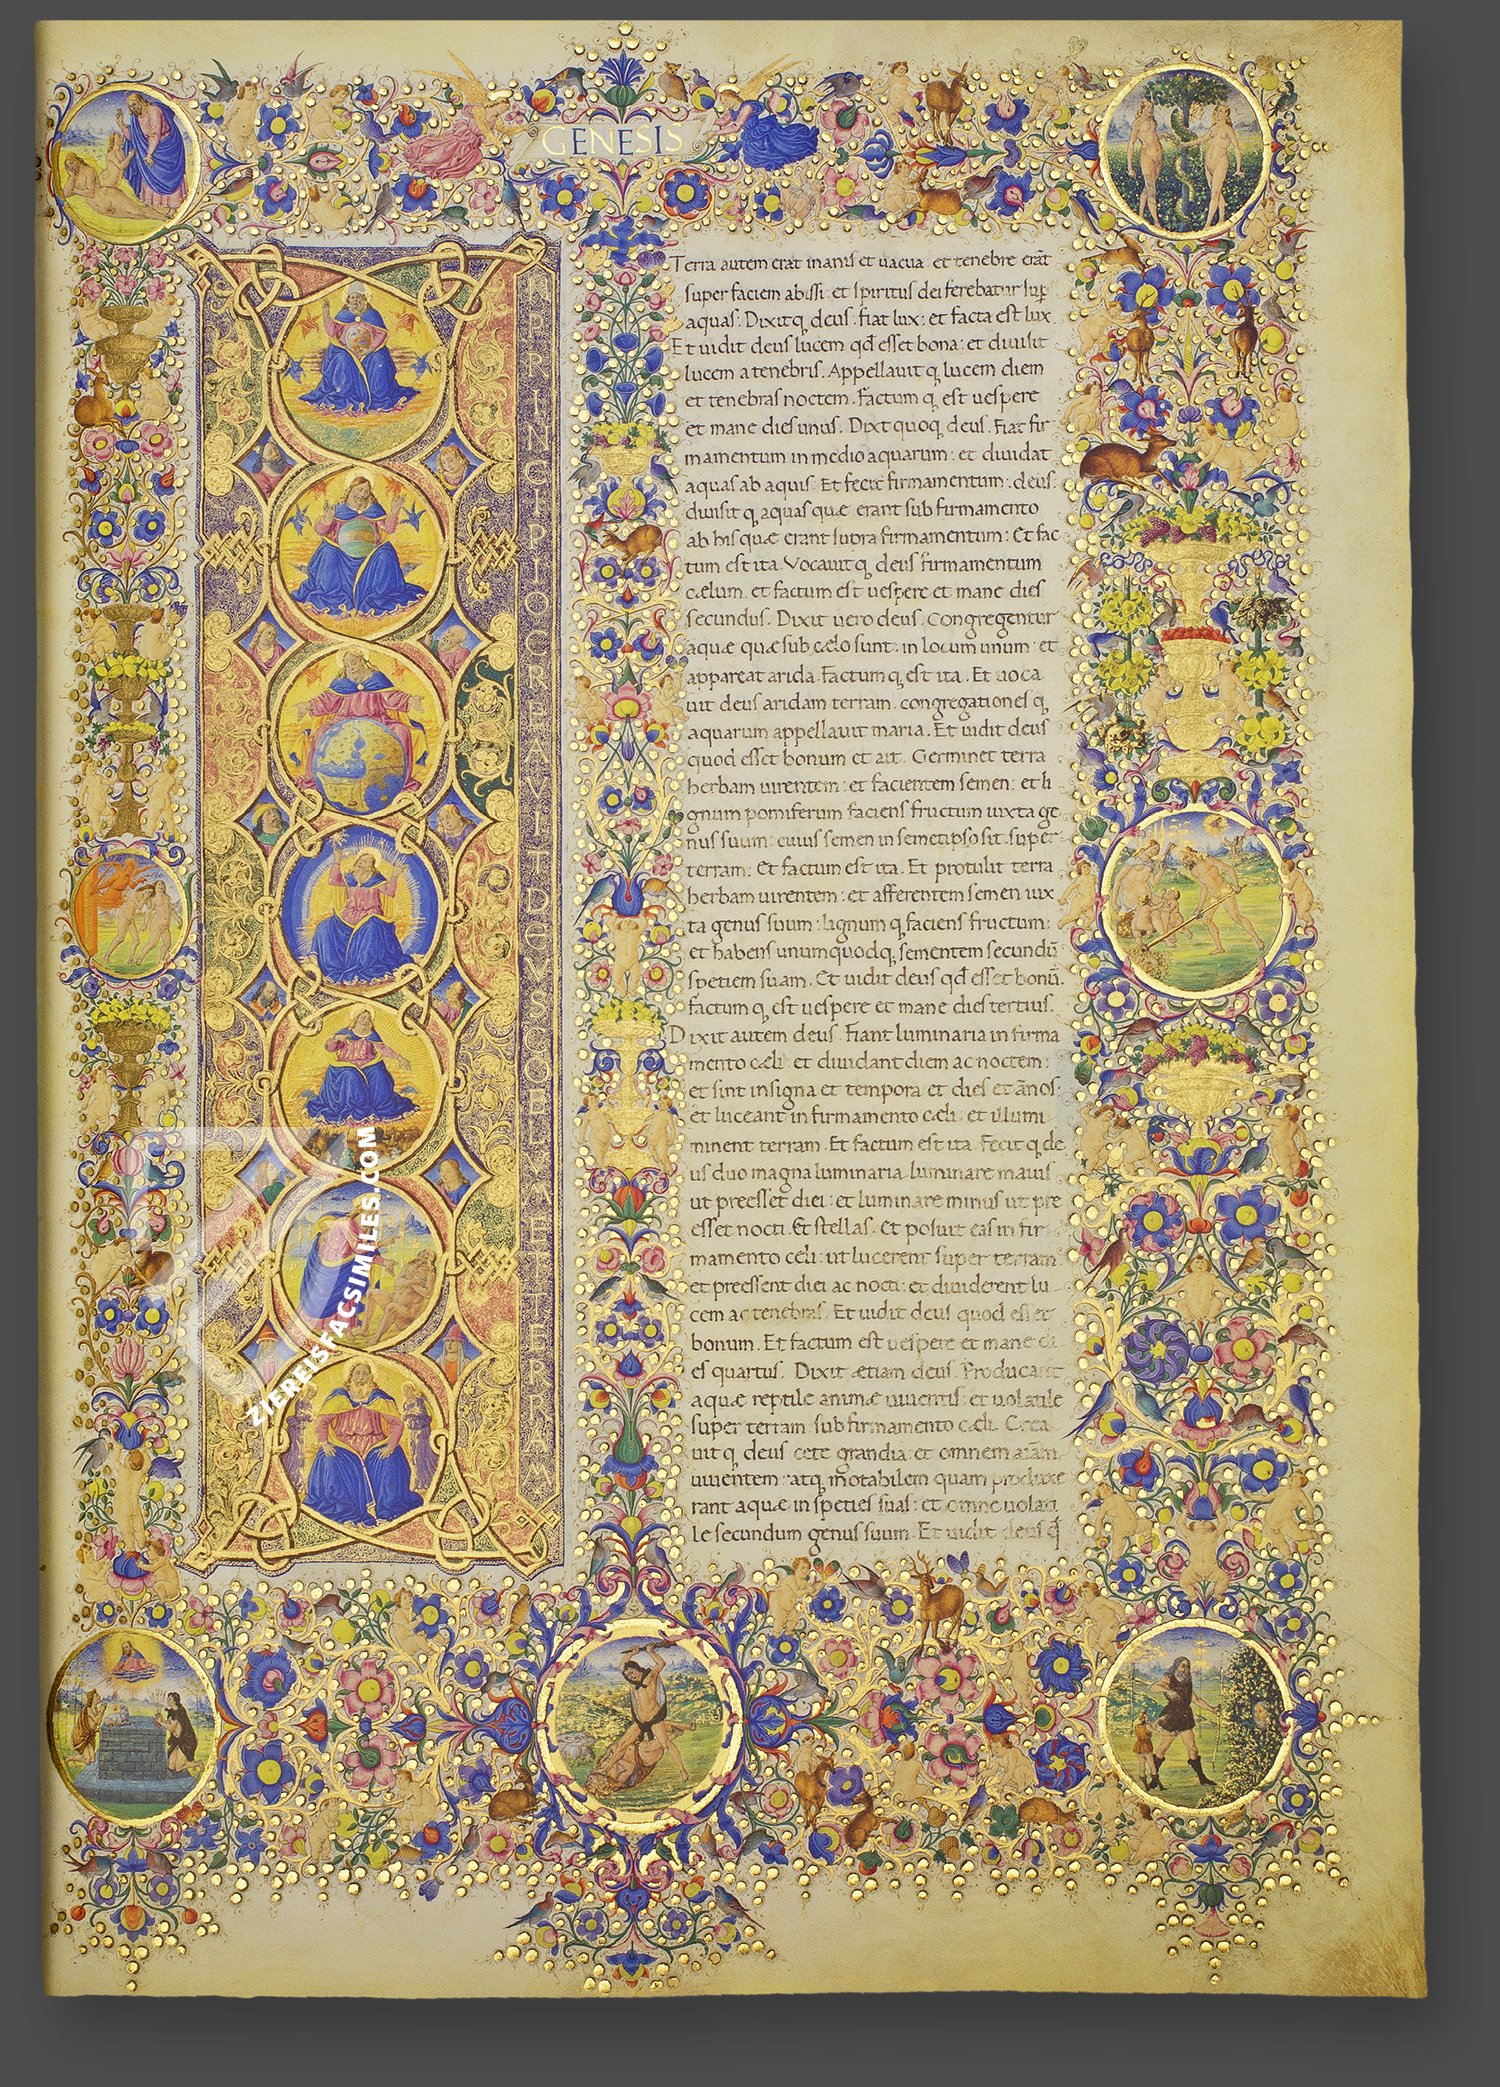 GENESIS
IN PRINCIPIO CREAVIT DEVS COELVM ET TERRAM
Terra autem erat inanis et uacua et tenebre erāt
super faciem abissi: et spiritus dei ferebatur sup̄
aquas: Dixitq deus: fiat lux: et facta est lux.
Et uidit deus lucem qđ esset bona: et diuisit
lucem a tenebris. Appellauit q lucem diem
et tenebras noctem. Factum q est uespere
et mane dies unus. Dixt quoq deus. Fiat fir
mamentum in medio aquarum: et diuidat
aquas ab aquis. Et fecit firmamentum: deus:
diuisit q aquas quæ erant sub firmamento
ab his quæ erant supra firmamentum: Et fac
tum est ita. Vocauit q deus firmamentum
cælum. et factum est uespere et mane dies
secundus. Dixit uero deus. Congregentur
aquæ quæ sub cælo sunt: in locum unum: et
appareat arida. Factum q est ita. Et uoca
uit deus aridam terram. congregationes q
aquarum appellauit maria. Et uidit deus
quod esset bonum et ait. Germinet terra
herbam uirentem: et facientem semen: et li
gnum pomiferum faciens fructum iuxta ge
nus suum: cuius semen in semetipso sit super
terram. Et factum est ita. Et protulit terra
herbam uirentem: et afferentem semen iux
ta genus suum: lignum q faciens fructum:
et habens unumquodq sementem secundū
spetiem suam. Et uidit deus qđ esset bonū.
factum q est uespere et mane dies tertius.
Dixit autem deus. Fiant luminaria in firma
mento cæli: et diuidant diem ac noctem:
et sint in signa et tempora et dies et ānos:
et luceant in firmamento cæli: et illumi
minent terram. Et factum est ita. Fecit q de
us duo magna luminaria. luminare maius
ut preesset diei: et luminare minus ut pre
esset nocti. Et stellas. Et posuit eas in fir
mamento celi: ut lucerent super terram:
et preessent diei ac nocti: et diuiderent lu
cem ac tenebras. Et uidit deus quod esset
bonum. Et factum est uespere et mane di
es quartus. Dixit ætiam deus. Producant
aquæ reptile animæ uiuentis: et uolatile
super terram: sub firmamento cæli. Crea
uit q deus cete grandia: et omnem aīam
uiuentem: atq motabilem quam produxe
rant aquæ in speties suas: et omne uolati
le secundum genus suum. Et uidit deus q̄
ZIEREISFACSIMILES.COM